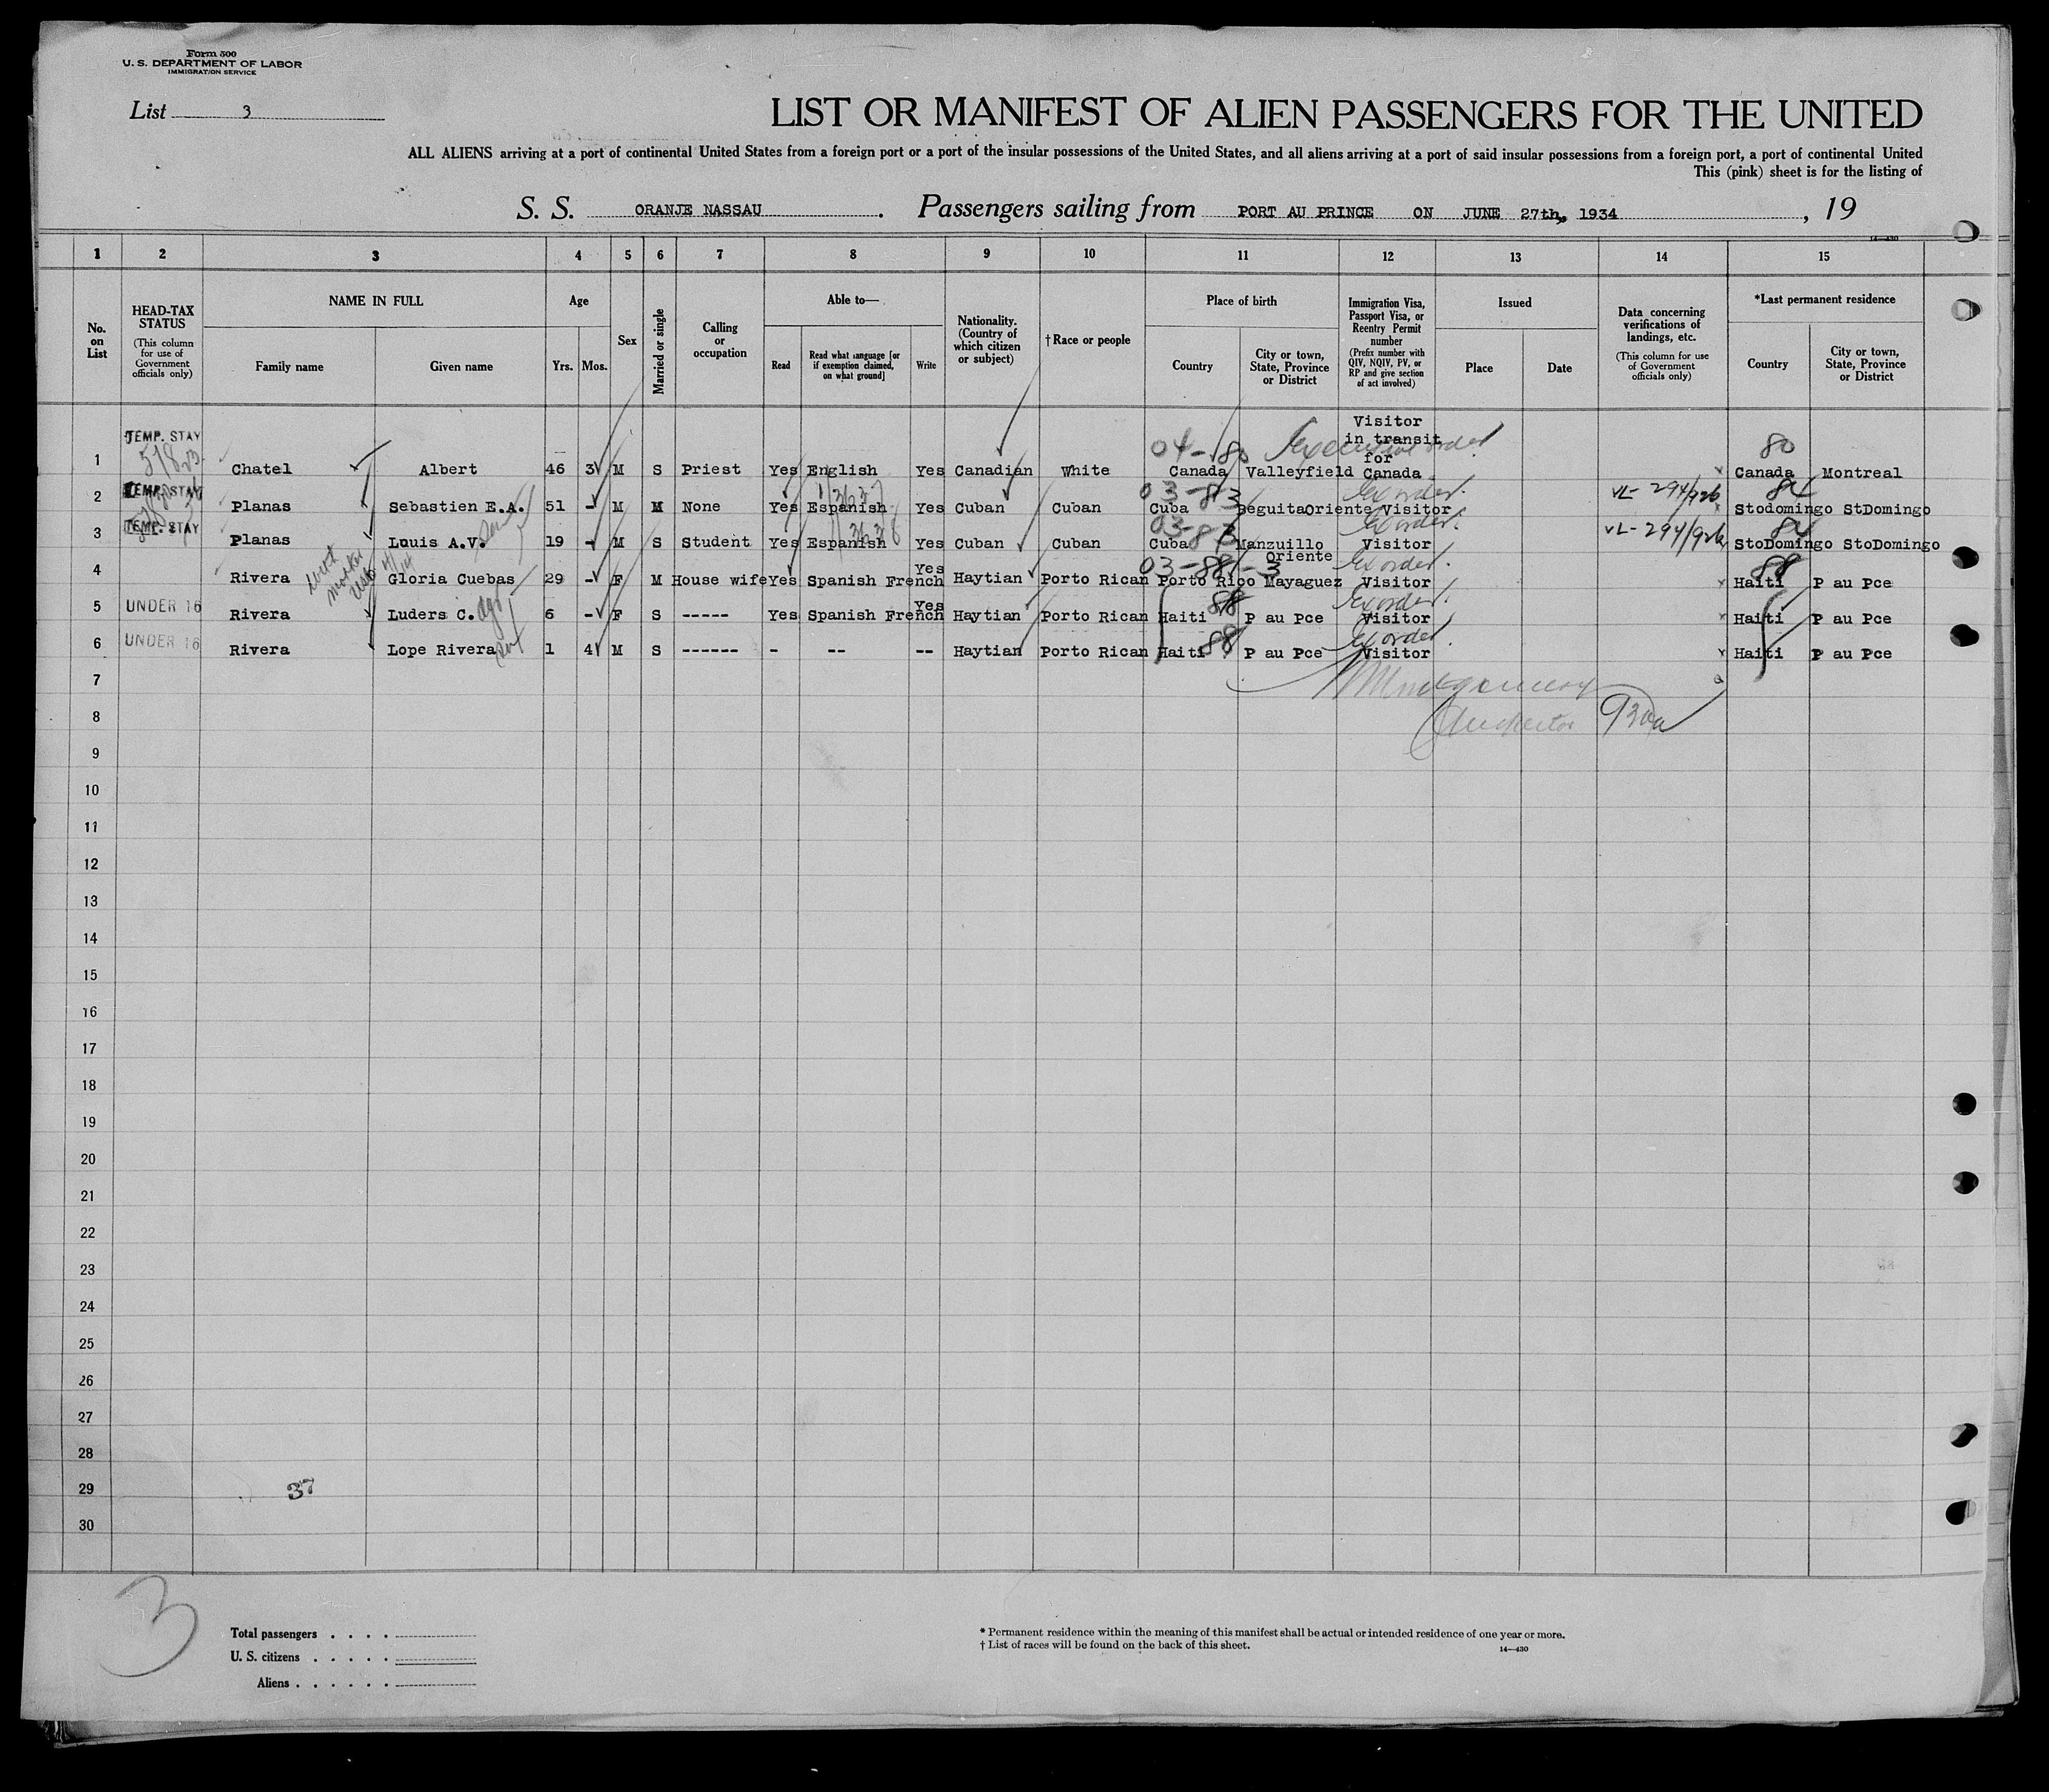 Form 500
U. S. DEPARTMENT OF LABOR
IMMIGRATION SERVICE
List 3
LIST OR MANIFEST OF ALIEN PASSENGERS FOR THE UNITED
ALL ALIENS arriving at a port of continental United States from a foreign port or a port of the insular possessions of the United States, and all aliens arriving at a port of said insular possessions from a foreign port, a port of continental United
This (pink) sheet is for the listing of
S. S. ORANJE NASSAU. Passengers sailing from PORT AU PRINCE ON JUNE 27th, 1934, 19
14—430
1 2 3 4 5 6 7 8 9 10 11 12 13 14 15
No. on List
HEAD-TAX STATUS (This column for use of Government officials only)
NAME IN FULL
Family name Given name
Age
Yrs. Mos.
Sex
Married or single
Calling or occupation
Able to—
Read Read what language [or if exemption claimed, on what ground] Write
Nationality. (Country of which citizen or subject)
†Race or people
Place of birth
Country City or town, State, Province or District
Immigration Visa, Passport Visa, or Reentry Permit number (Prefix number with QIV, NQIV, PV, or RP and give section of act involved)
Issued
Place Date
Data concerning verifications of landings, etc. (This column for use of Government officials only)
*Last permanent residence
Country City or town, State, Province or District
1 TEMP. STAY Chatel Albert 46 3 M S Priest Yes English Yes Canadian White 04-80 Canada Valleyfield Visitor in transit for Canada Executive order 80 Canada Montreal
2 TEMP. STAY Planas Sebastien E.A. 51 - M M None Yes Espanish Yes Cuban Cuban 03-83 Cuba BeguitaOriente Visitor Ex order. VL-294/926 84 Stodomingo StDomingo
3 TEMP. STAY Planas Louis A.V. 19 - M S Student Yes Espanish Yes Cuban Cuban 03-83 Cuba Manzuillo Oriente Visitor Ex order. VL-294/926 84 StoDomingo StoDomingo
4 Rivera Gloria Cuebas 29 - F M House wife Yes Spanish French Yes Haytian Porto Rican 03-88/-3 Porto Rico Mayaguez Visitor Ex order. 88 Haiti P au Pce
5 UNDER 16 Rivera Luders C. 6 - F S ----- Yes Spanish French Yes Haytian Porto Rican Haiti 88 P au Pce Visitor Ex order. Haiti P au Pce
6 UNDER 16 Rivera Lope Rivera 1 4 M S ------ - -- -- Haytian Porto Rican Haiti 88 P au Pce Visitor Ex order. Haiti P au Pce
7
8 Inspector
9
10
11
12
13
14
15
16
17
18
19
20
21
22
23
24
25
26
27
28
29 37
30
3
Total passengers . . . .
U. S. citizens . . . . .
Aliens . . . . . .
* Permanent residence within the meaning of this manifest shall be actual or intended residence of one year or more.
† List of races will be found on the back of this sheet.
14—430